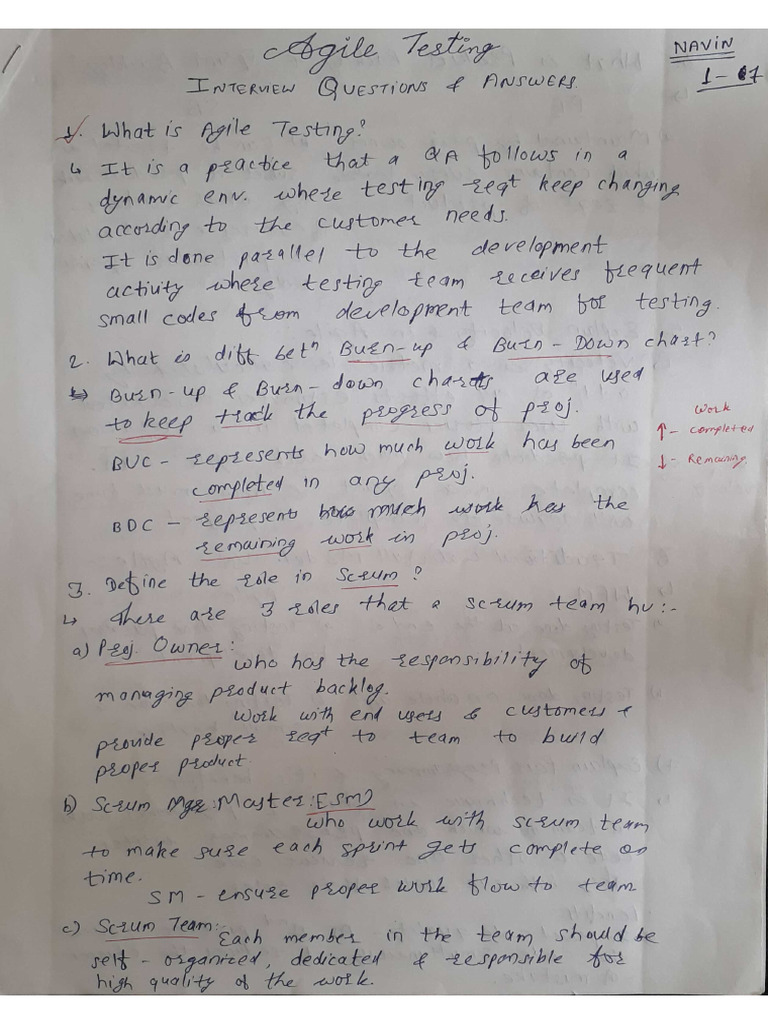 1
Agile Testing
NAVIN
INTERVIEW QUESTIONS & ANSWERS.
1-67
1. What is Agile Testing?
↳ It is a practice that a QA follows in a
dynamic env. where testing reqt keep changing
according to the customer needs.
It is done parallel to the development
activity where testing team receives frequent
small codes from development team for testing.
2. What is diff betn Burn-up & Burn-Down chart?
↳ Burn-up & Burn-down charts are used
to keep track the progress of proj.
work
↑ - completed
↓ - Remaining
BUC - represents how much work has been
completed in any proj.
BDC - represent how much work has the
remaining work in proj.
3. Define the role in Scrum?
↳ There are 3 roles that a scrum team hv:-
a) Proj. Owner:
who has the responsibility of
managing product backlog.
Work with end users & customers &
provide proper reqt to team to build
proper product.
b) Scrum Master: (SM)
who work with scrum team
to make sure each sprint gets complete on
time.
SM - ensure proper work flow to team
c) Scrum Team:-
Each member in the team should be
self-organized, dedicated & responsible for
high quality of the work.